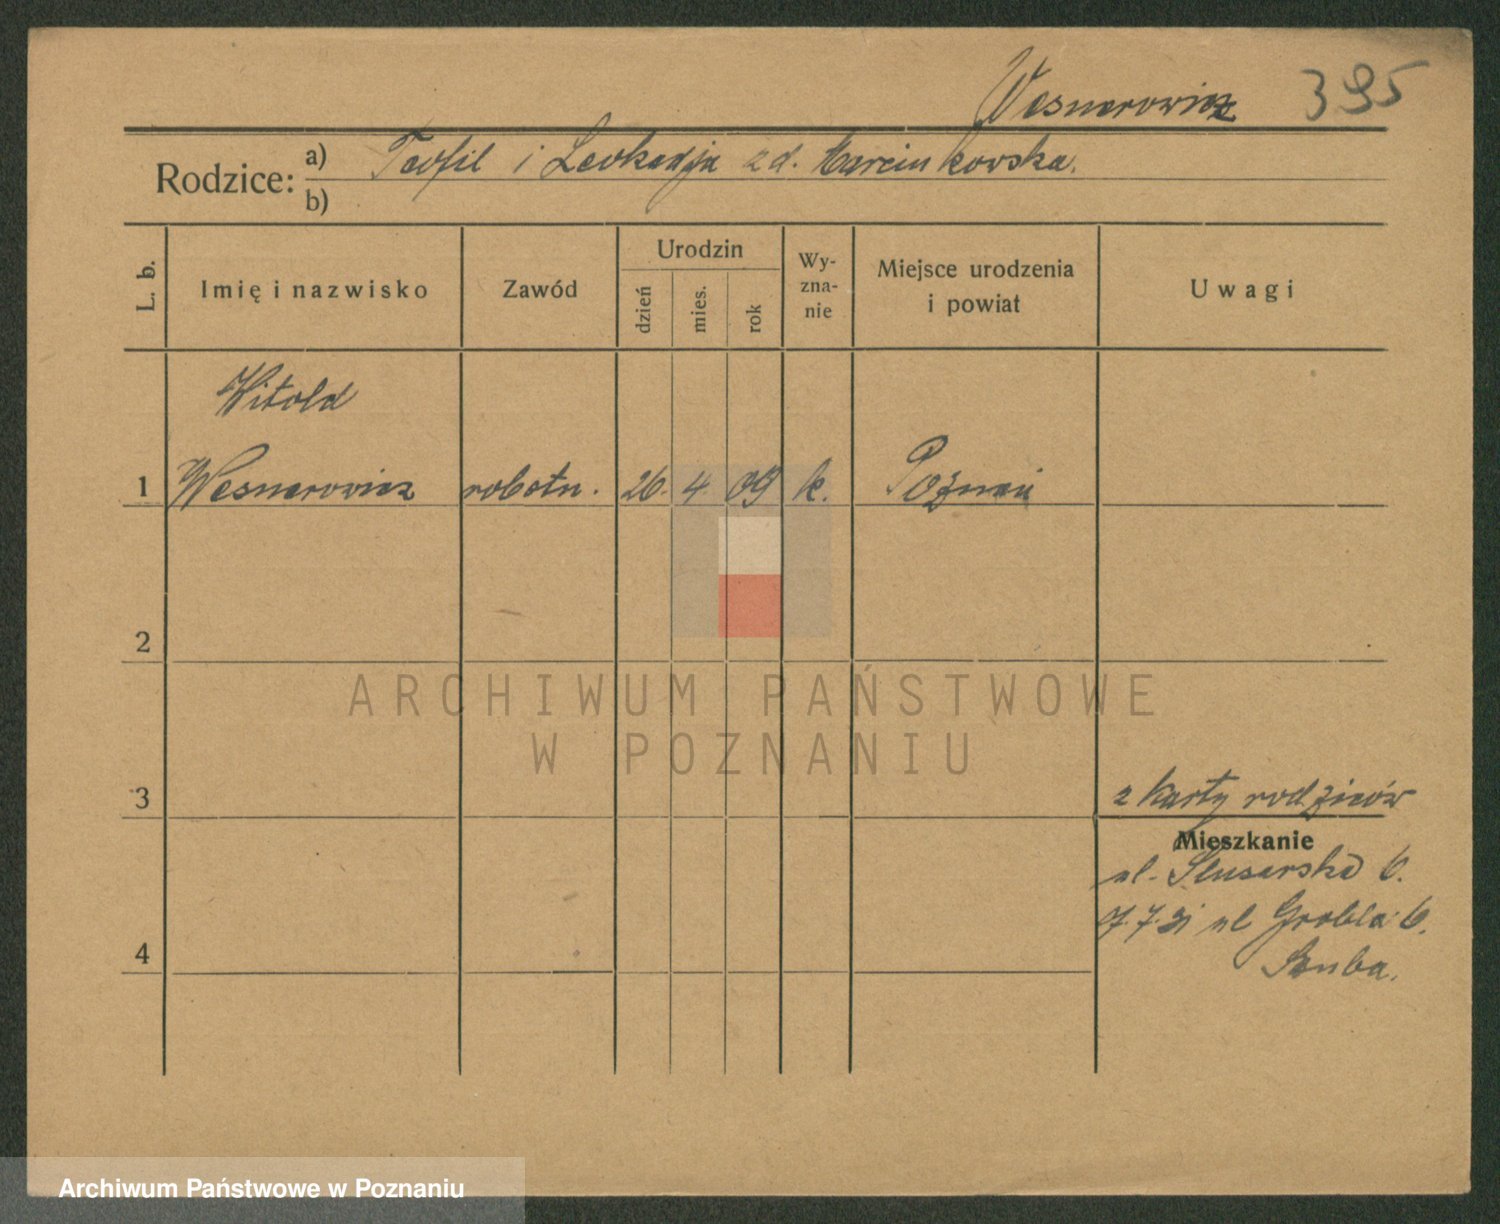 Wesnerowicz 395
Rodzice: a) Teofil i Leokadja zd. Marcinkowska.
b)
L. b.
Imię i nazwisko
Zawód
Urodzin
dzień
mies.
rok
Wy-
zna-
nie
Miejsce urodzenia
i powiat
Uwagi
Witold
1 Wesnerowicz robotn. 26. 4. 09 k. Poznań
2
ARCHIWUM PAŃSTWOWE
W POZNANIU
3 z karty rodziców
Mieszkanie
ul. Ślusarska 6.
7.7.31 ul Grobla 6.
4
Archiwum Państwowe w Poznaniu